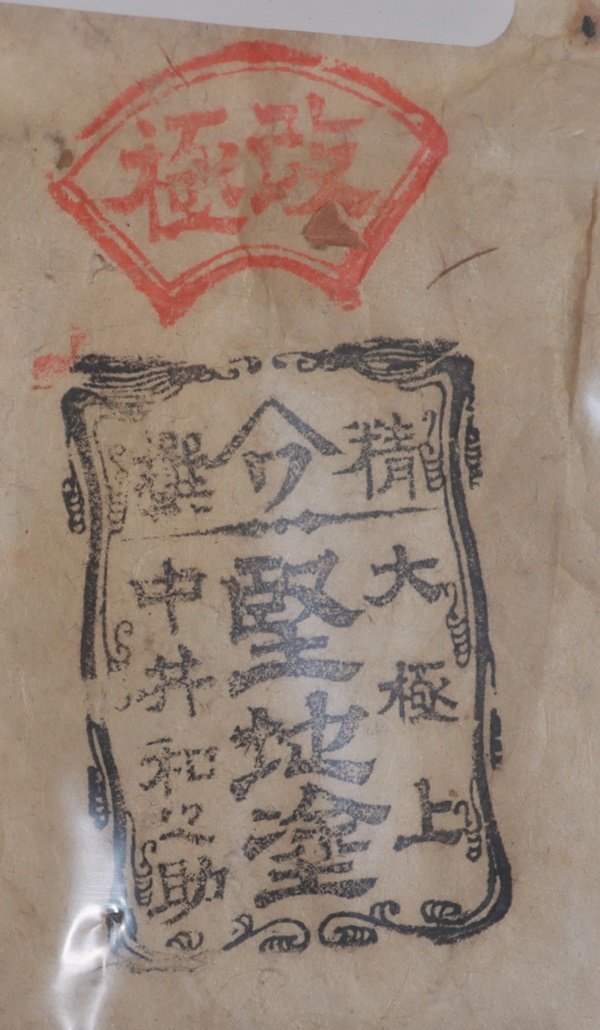 改極
精撰
大極上
堅地塗
中井和之助